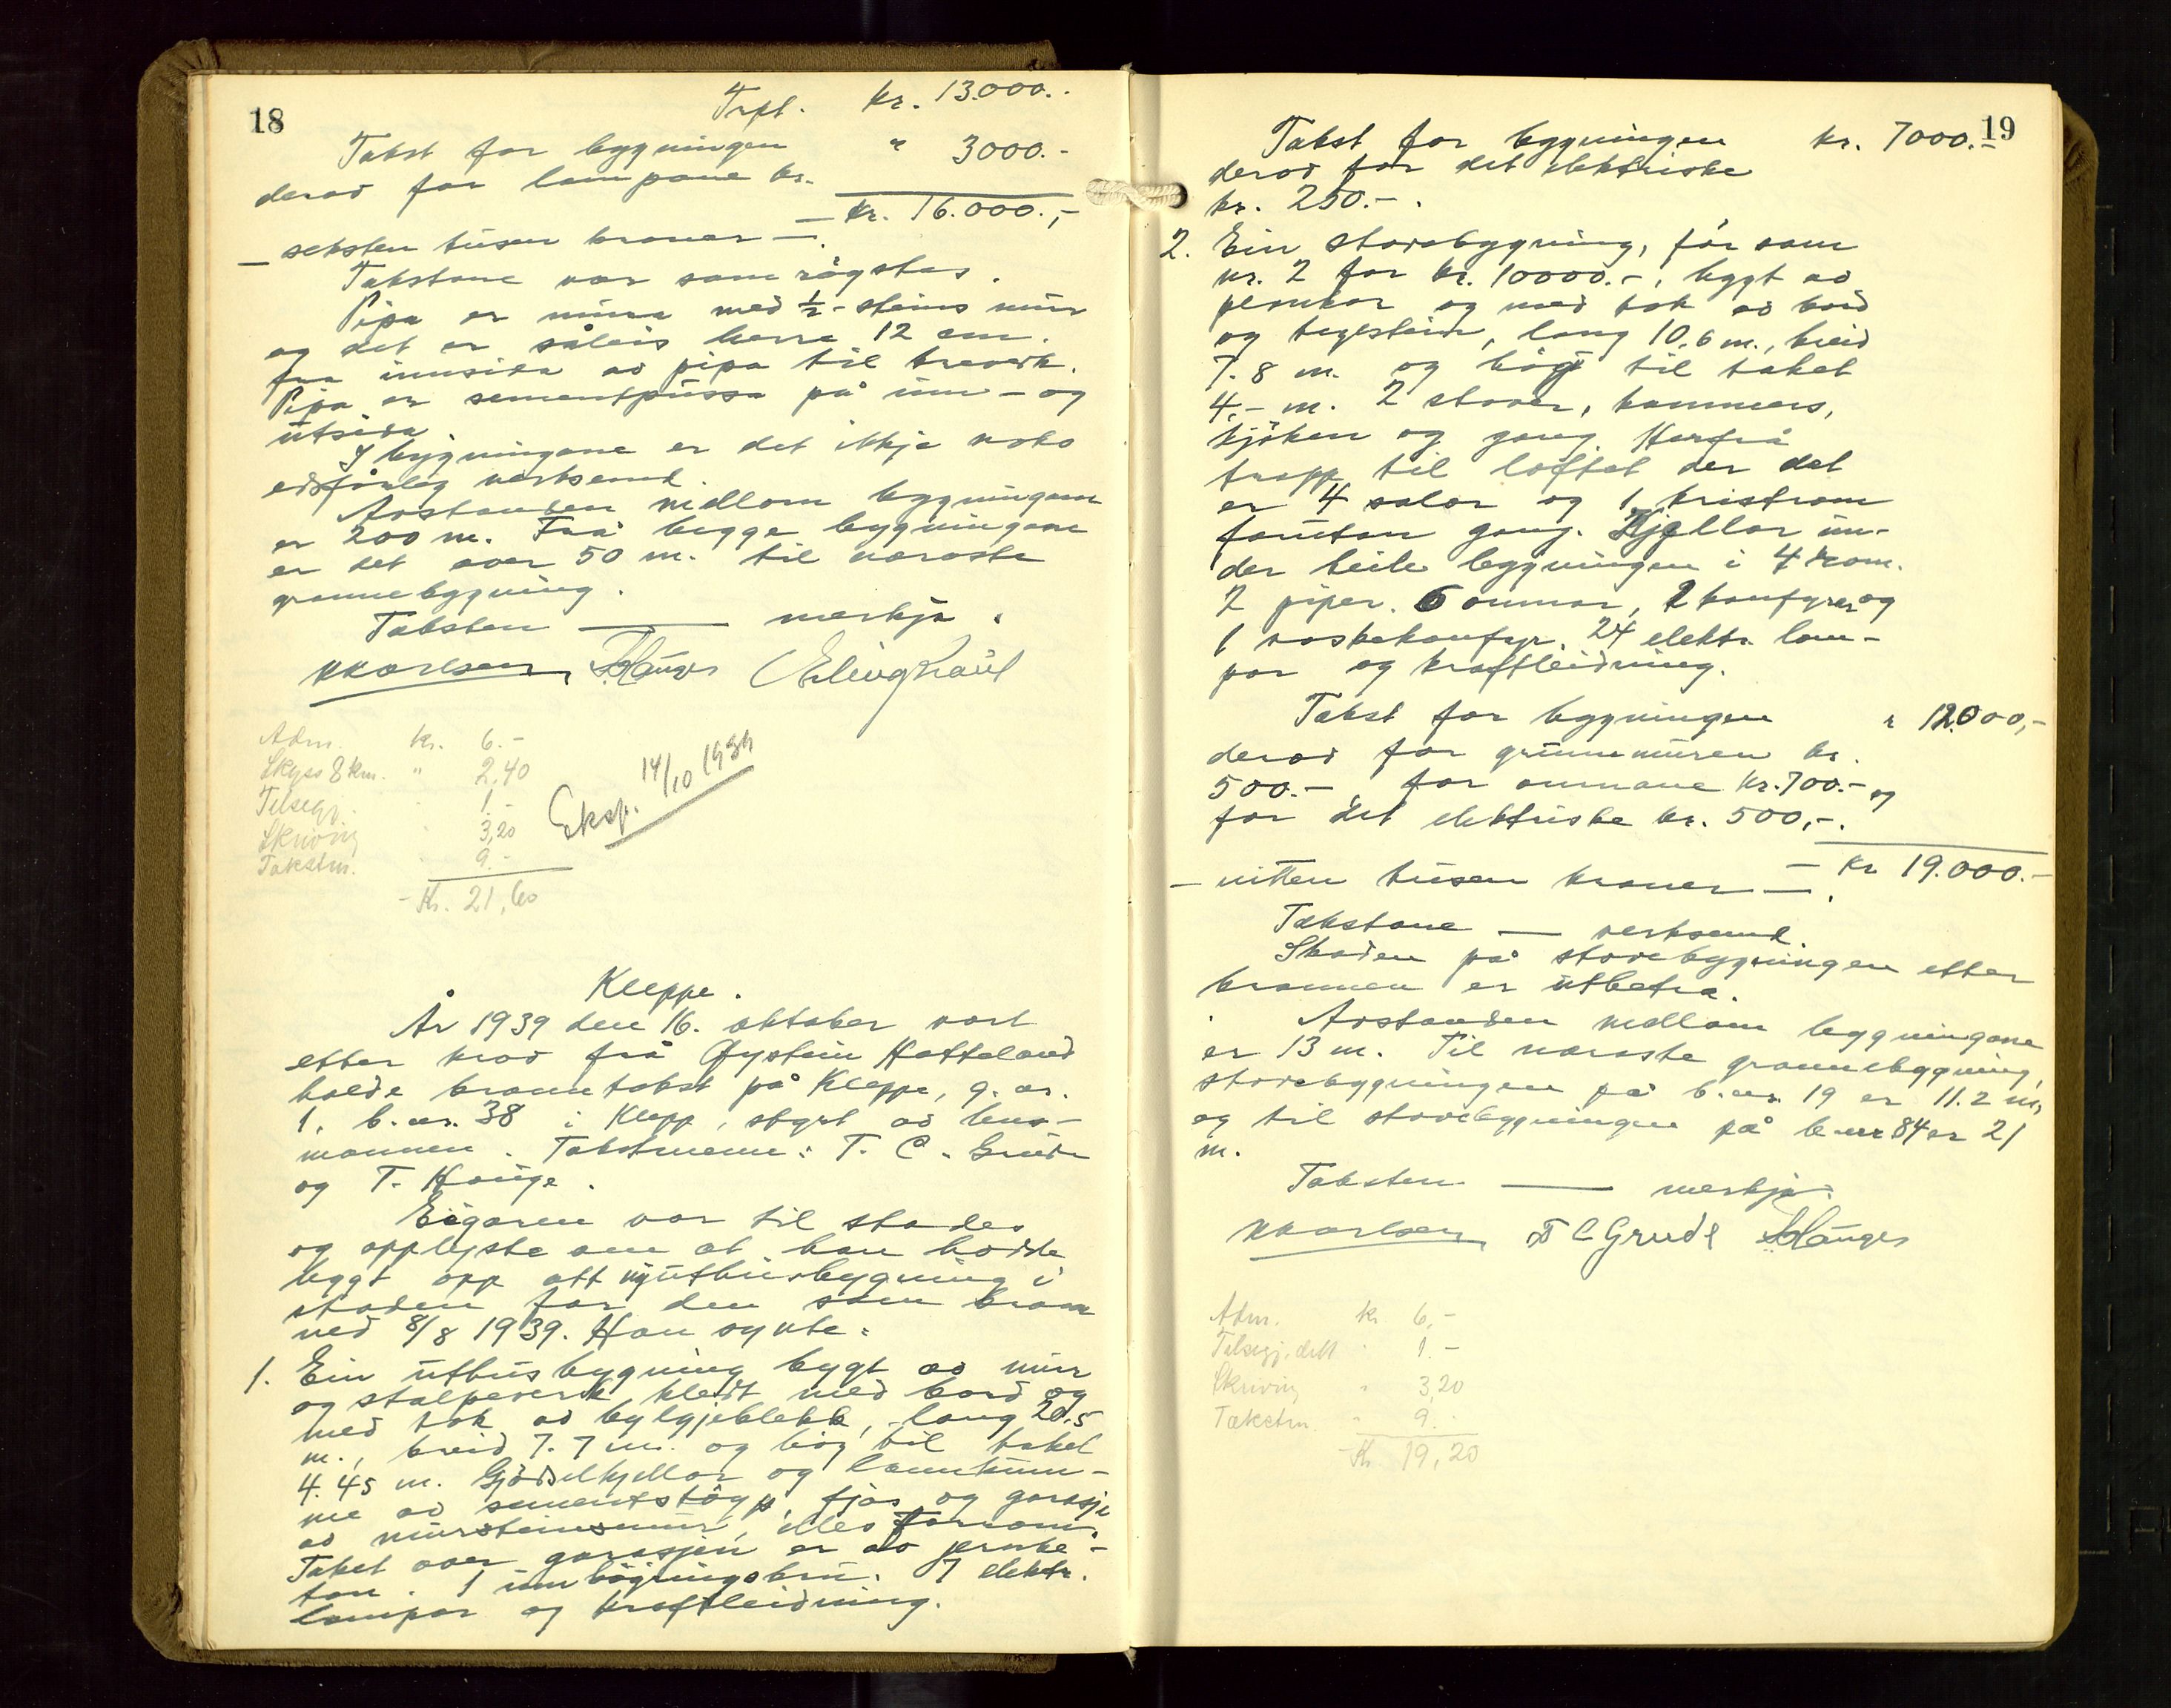 18
Trft. kr. 13.000.-
Takst for bygningen " 3000.-
derav for lampane kr.
— kr. 16.000.,-
— seksten tusen kroner —.
Takstane var samrøystes.
Pipa er mura med ½-steins mur
og det er såleis berre 12 cm.
fra innsida av pipa til treverk.
Pipa er sementpussa på inn- og
utsida.
I bygningane er det ikkje noko
eldsfårleg verksemd.
Avstanden mellom bygningane
er 200 m. Frå begge bygningane
er det over 50 m. til næraste
grannebygning.
Taksten —— merkja.
KKarlsen, THauge Erling Kaul
Adm. kr. 6.-
Skyss 8 km. " 2,40
Tilsegj. 1.-
Skriving 3,20
Takstm. 9.-
- Kr. 21,60
Eksp. 14/10 1939
Kleppe.
År 1939 den 16. oktober vart
etter krav frå Øystein Hatteland
halde branntakst på Kleppe, g. nr.
1, b.nr. 38 i Klepp, styrt av lens-
mannen. Takstmenn: T. C. Grude
og T. Hauge.
Eigaren var til stades
og opplyste om at han hadde
bygt opp att ny uthusbygning i
staden for den som brann
ned 8/8 1939. Han synte:
1. Ein uthusbygning bygt av mur
og stalpeverk kledt med bord og
med tak av bylgjeblekk, - lang 20,5
m., breid 7.7 m. og høg til taket
4.45 m. Gjødselkjellar og landkum-
me av sementstøyp, fjos og garasje
av mursteinsmur, elles forrom.
Taket over garasjen er av jernbe-
ton. 1 innkøyringsbru. 7 elektr.
lampor og kraftleidning.
19
Takst for bygningen kr. 7000.-
derav for det elektriske
kr. 250.-.
2. Ein stovebygning, før som
nr. 2 for kr. 10000.-, bygt av
plankar og med tak av bord
og teglstein, lang 10,6 m., breid
7.8 m. og høg til taket
4,- m. 2 stover, kammers,
kjøken og gang. Herfrå
trapp til loftet der det
er 4 salar og 1 kvistrom
forutan gang. Kjellar un-
der heile bygningen i 4 rom.
2 piper. 6 omnar, 2 komfyrer og
1 vaskekomfyr. 24 elektr. lam-
por og kraftleidning.
Takst for bygningen " 12000,-
derav for grunnmuren kr.
500.-, for omnane kr. 700.- og
for det elektriske kr. 500,-.
— Kr 19.000.-
— nitten tusen kroner —.
Takstane —— verksemd.
Skaden på stovebygningen etter
brannen er utbetra.
Avstanden mellom bygningane
er 13 m. Til næraste grannebygning,
stovebygningen på b.nr. 19 er 11.2 m,
og til stovebygningen på b.nr 84 er 21
m.
Taksten —— merkja.
KKarlsen, T C Grude THauge
Adm. kr. 6,-
Tilsegj. delt " 1.-
Skriving " 3,20
Takstm. " 9.-
- Kr 19,20